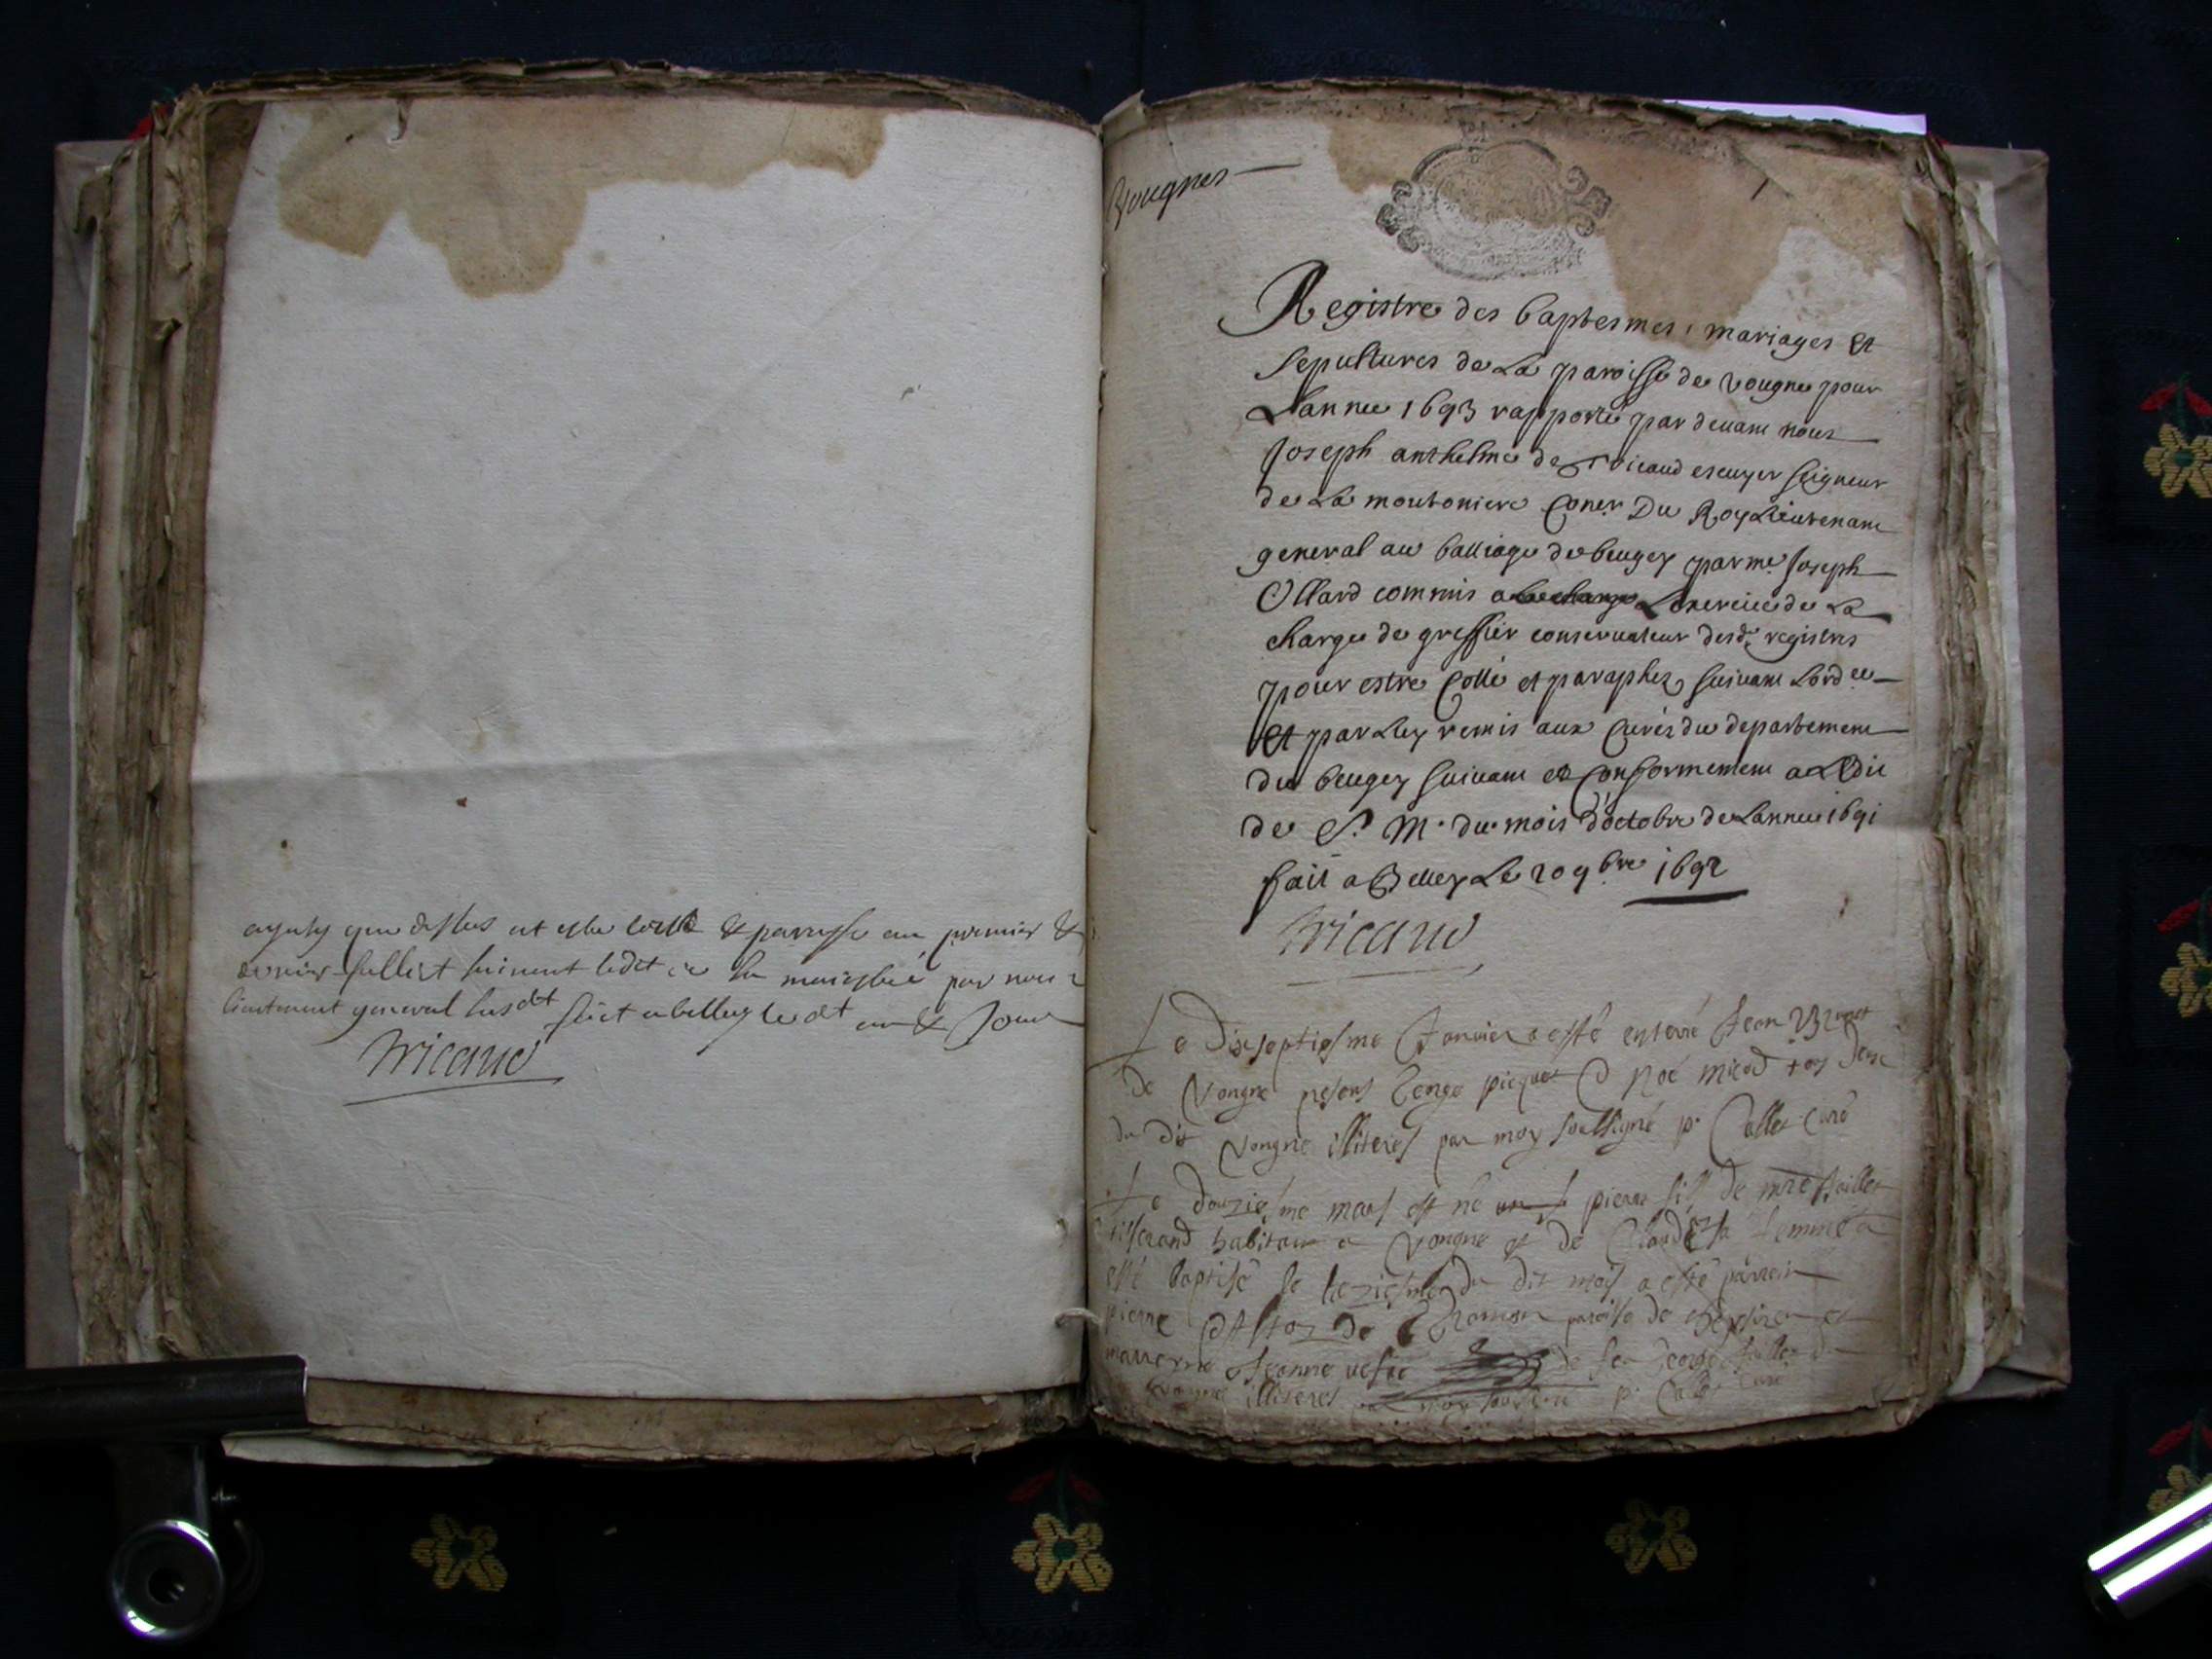 ainsy que dessus et estre cotté & paraffé au premier &
dernier fellliet suivant ledit de sa maiesté par nous
lieutenant general susdt fait a belley led.t an & Jour
Tricaud
Vougnes
Registre des baptesmes, mariages et
sepultures de La paroisse de vougne pour
Lannee 1693 rapporté par devant nous
Joseph anthelme de Tricaud escuyer seigneur
de La moutoniere Coner Du Roy Lieutenant
general au balliage de beugey par me Joseph
Ollard commis a Lexercice de La
charge de greffier conservateur desd. registres
pour estre Collé et paraphez suivant Lord ce
et par Luy remis aux Curés du departement
du beugey suivant et Conformement a Ledit
de S. M. du mois d'octobre de Lannee 1691
fait a Belley Le 20 9bre 1692
Tricaud
Le Dixseptiesme Janvier a esté enterré Jean
de Vongne presens George picquet & Noé micod tos deux
du dit Vongne illiteres par moy soussigné p. Callet curé
Le douziesme mars est né pierre fils de mre
tisserand habitant a Vongne et de Claude sa femme a
esté baptisé le treziesme du dit mois a esté parrein
pierre de paroise de et
marrene Jeanne de feu George du
Vongne illiteres par moy soussigné p. Callet curé